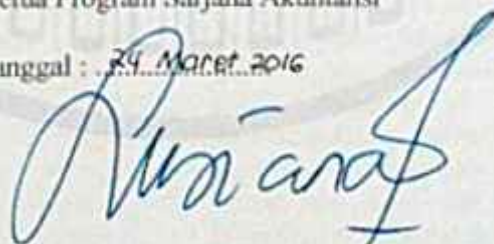 etua Program Sarjana Akuntansi
anggal : 24 Maret 2016